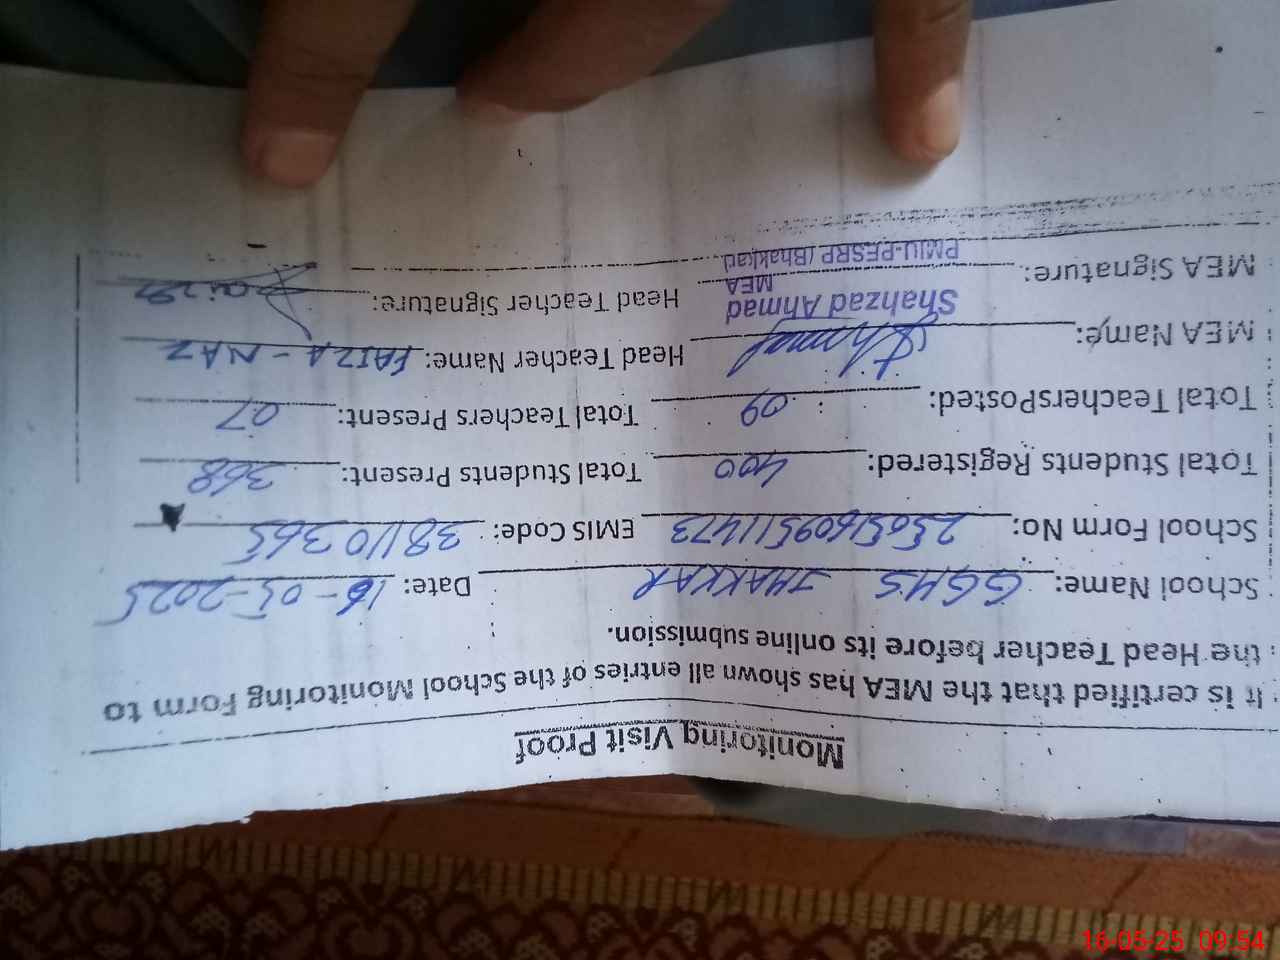 Monitoring Visit Proof
It is certified that the MEA has shown all entries of the School Monitoring Form to
the Head Teacher before its online submission.
School Name: GGHS JHAKKAR Date: 16-05-2025
School Form No: 25051609511473 EMIS Code: 38110365
Total Students Registered: 400 Total Students Present: 368
Total TeachersPosted: 09 Total Teachers Present: 07
MEA Name: Ahmad Head Teacher Name: FAIZA-NAZ
Shahzad Ahmad
MEA
PMIU-PESRP (Bhakkar)
MEA Signature: Head Teacher Signature: Faiza
16-05-25 09:54